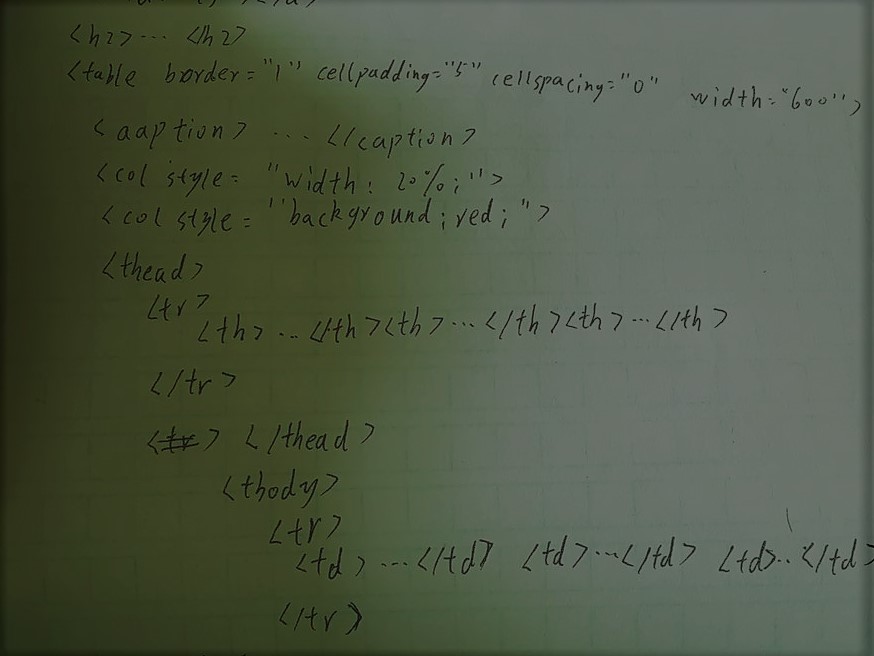 <h2>... </h2>
<table border="1" cellpadding="5" cellspacing="0" width="600">
<aaption> ... </caption>
<col style= "width: 20%;">
<col style= "background;red;">
<thead>
<tr>
<th>...</th><th>...</th><th>...</th>
</tr>
</thead>
<tbody>
<tr>
<td>...</td> <td>...</td> <td>..</td>
</tr>